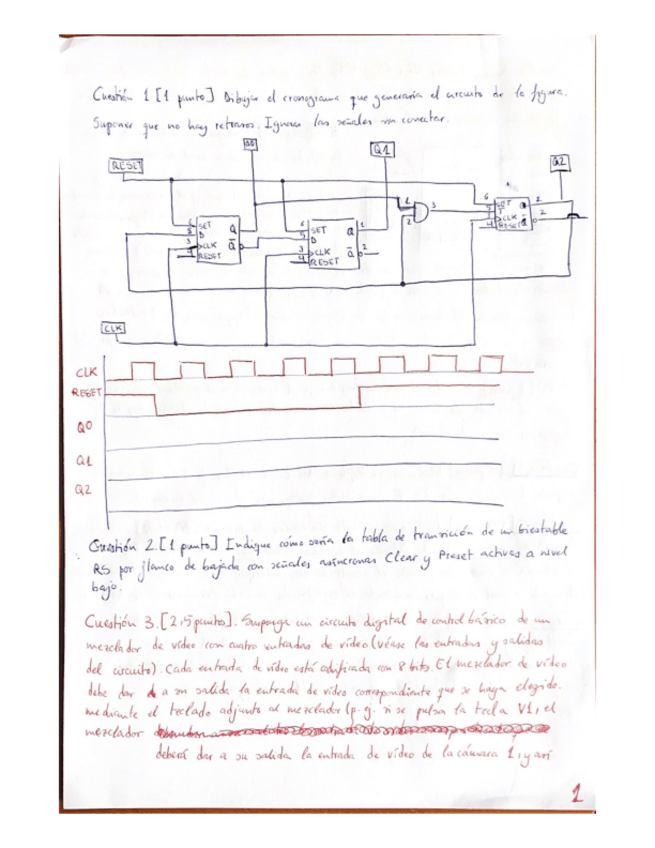 Cuestión 1 [1 punto] Dibujar el cronograma que generaría el circuito de la figura.
Suponer que no hay retrasos. Ignorar las señales sin conectar.
Q0
Q1
RESET
Q2
6 SET
5 D
3 CLK
4 RESET
Q
Q
6 SET
5 D
3 CLK
4 RESET
Q 1
Q 2
1
2
3
6 SET
5 T
3 CLK
4 RESET
Q 1
Q 2
CLK
CLK
RESET
Q0
Q1
Q2
Cuestión 2. [1 punto] Indique cómo sería la tabla de transición de un biestable
RS por flanco de bajada con señales asíncronas Clear y Preset activas a nivel
bajo.
Cuestión 3. [2,5 puntos]. Suponga un circuito digital de control básico de un
mezclador de vídeo con cuatro entradas de vídeo (véase las entradas y salidas
del circuito). Cada entrada de vídeo está codificada con 8 bits. El mezclador de vídeo
debe dar a su salida la entrada de vídeo correspondiente que se haya elegido.
mediante el teclado adjunto al mezclador (p.g. si se pulsa la tecla V1, el
mezclador
deberá dar a su salida la entrada de vídeo de la cámara 1, y así
1